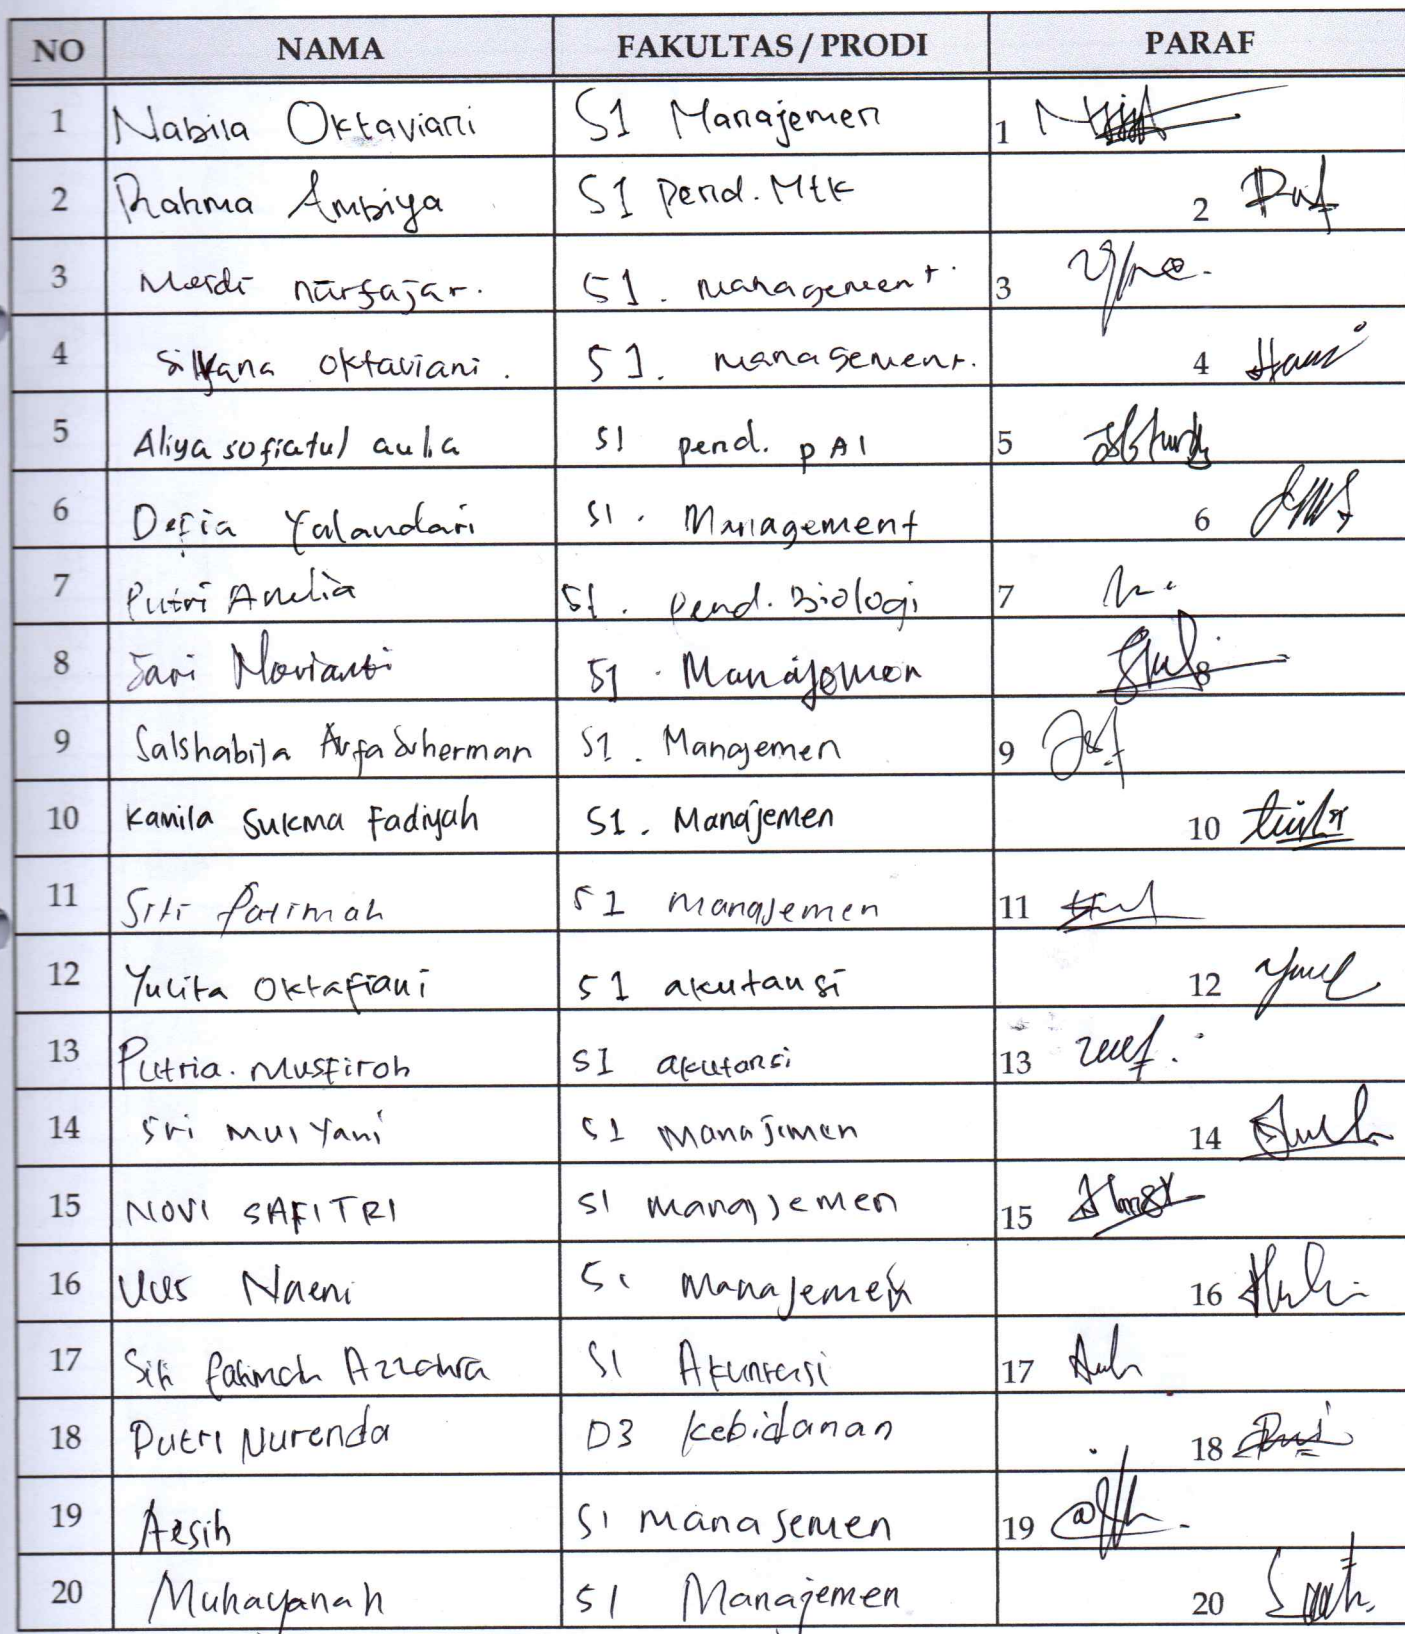 NO NAMA FAKULTAS / PRODI PARAF
1 Nabila Oktaviani S1 Manajemen 1
2 Rahma Ambiya S1 Pend. Mtk 2
3 Meidi nurfajar. S1. management. 3
4 Silvana Oktaviani. S1. management. 4
5 Aliya sofiatul aulia S1 pend. pAI 5
6 Defia Yalandari S1. Management 6
7 Putri Amelia S1. Pend. Biologi 7
8 Sari Novianti S1. Manajemen 8
9 Salshabila Arfa Suherman S1. Manajemen 9
10 Kamila Sukma Fadiyah S1. Manajemen 10
11 Siti fatimah S1 manajemen 11
12 Yulita Oktafiani S1 akutansi 12
13 Putria. Musfiroh S1 akutansi 13
14 Sri Mulyani S1 Manajimen 14
15 NOVI SAFITRI S1 manajemen 15
16 Uus Naeni S1 Manajemen 16
17 Siti fatimah Azzahra S1 Akuntansi 17
18 Putri Nurenda D3 Kebidanan 18
19 Aesih S1 manasemen 19
20 Muhayanah S1 Manajemen 20